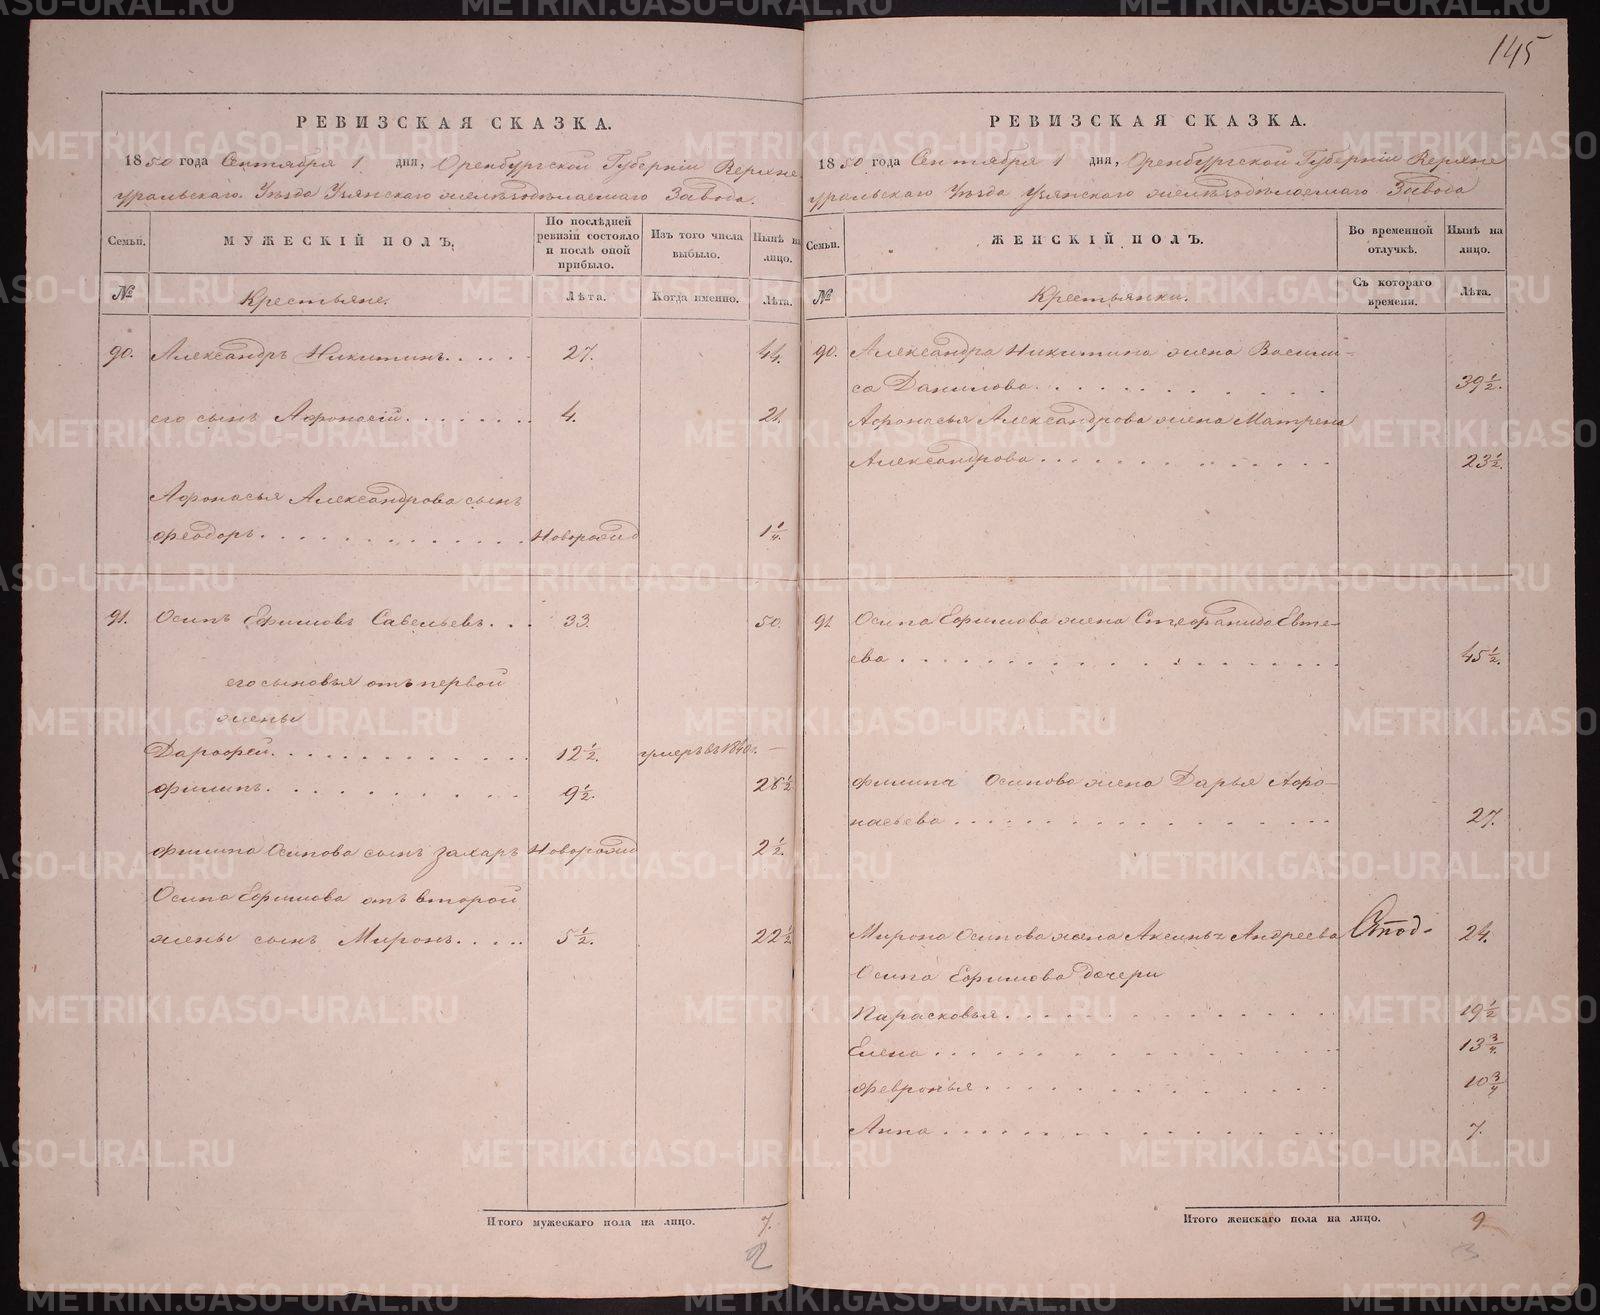 145
РЕВИЗСКАЯ СКАЗКА.
1850 года Сентября 1 дня, Оренбургской Губерніи Верхне
уральскаго Уѣзда Узянскаго желѣзодѣлаемаго Завода.
Семьи. МУЖЕСКІЙ ПОЛЪ. По послѣдней ревизіи состояло и послѣ оной прибыло. Изъ того числа выбыло. Нынѣ на лицо.
№ Крестьяне. Лѣта. Когда именно. Лѣта.
90. Александръ Никитинъ..... 27. 44.
его сынъ Афонасій....... 4. 21.
Афонасья Александрова сынъ
Феодоръ............. Новорожд 1 1/4.
91. Осипъ Ефимовъ Савельевъ... 33. 50.
его сыновья отъ первой
жены
Дарофей............. 12 1/2. умеръ въ 1840. —
Филипъ........... 9 1/2. 26 1/2
Филипа Осипова сынъ Захаръ Новорожд 2 1/2.
Осипа Ефимова отъ второй
жены сынъ Миронъ..... 5 1/2. 22 1/2
Итого мужескаго пола на лицо. 7.
2
РЕВИЗСКАЯ СКАЗКА.
1850 года Сентября 1 дня, Оренбургской Губерніи Верхне
уральскаго Уѣзда Узянскаго желѣзодѣлаемаго Завода
Семьи. ЖЕНСКІЙ ПОЛЪ. Во временной отлучкѣ. Нынѣ на лицо.
№ Крестьянки. Съ котораго времени. Лѣта.
90. Александра Никитина жена Васили-
са Данилова......... 39 1/2.
Афонасья Александрова жена Матрена
Александрова........... 23 1/2.
91 Осипа Ефимова жена Стефанида Евте-
ева................ 45 1/2.
Филипа Осипова жена Дарья Афо-
насьева.............. 27.
Мирона Осипова жена Аксинья Андреева 24.
Осипа Ефимова дочери
Парасковья............. 19 1/2
Елена............... 13 3/4.
Февронья............. 10 3/4
Анна............... 7.
Итого женскаго пола на лицо. 9
3
METRIKI.GASO-URAL.RU